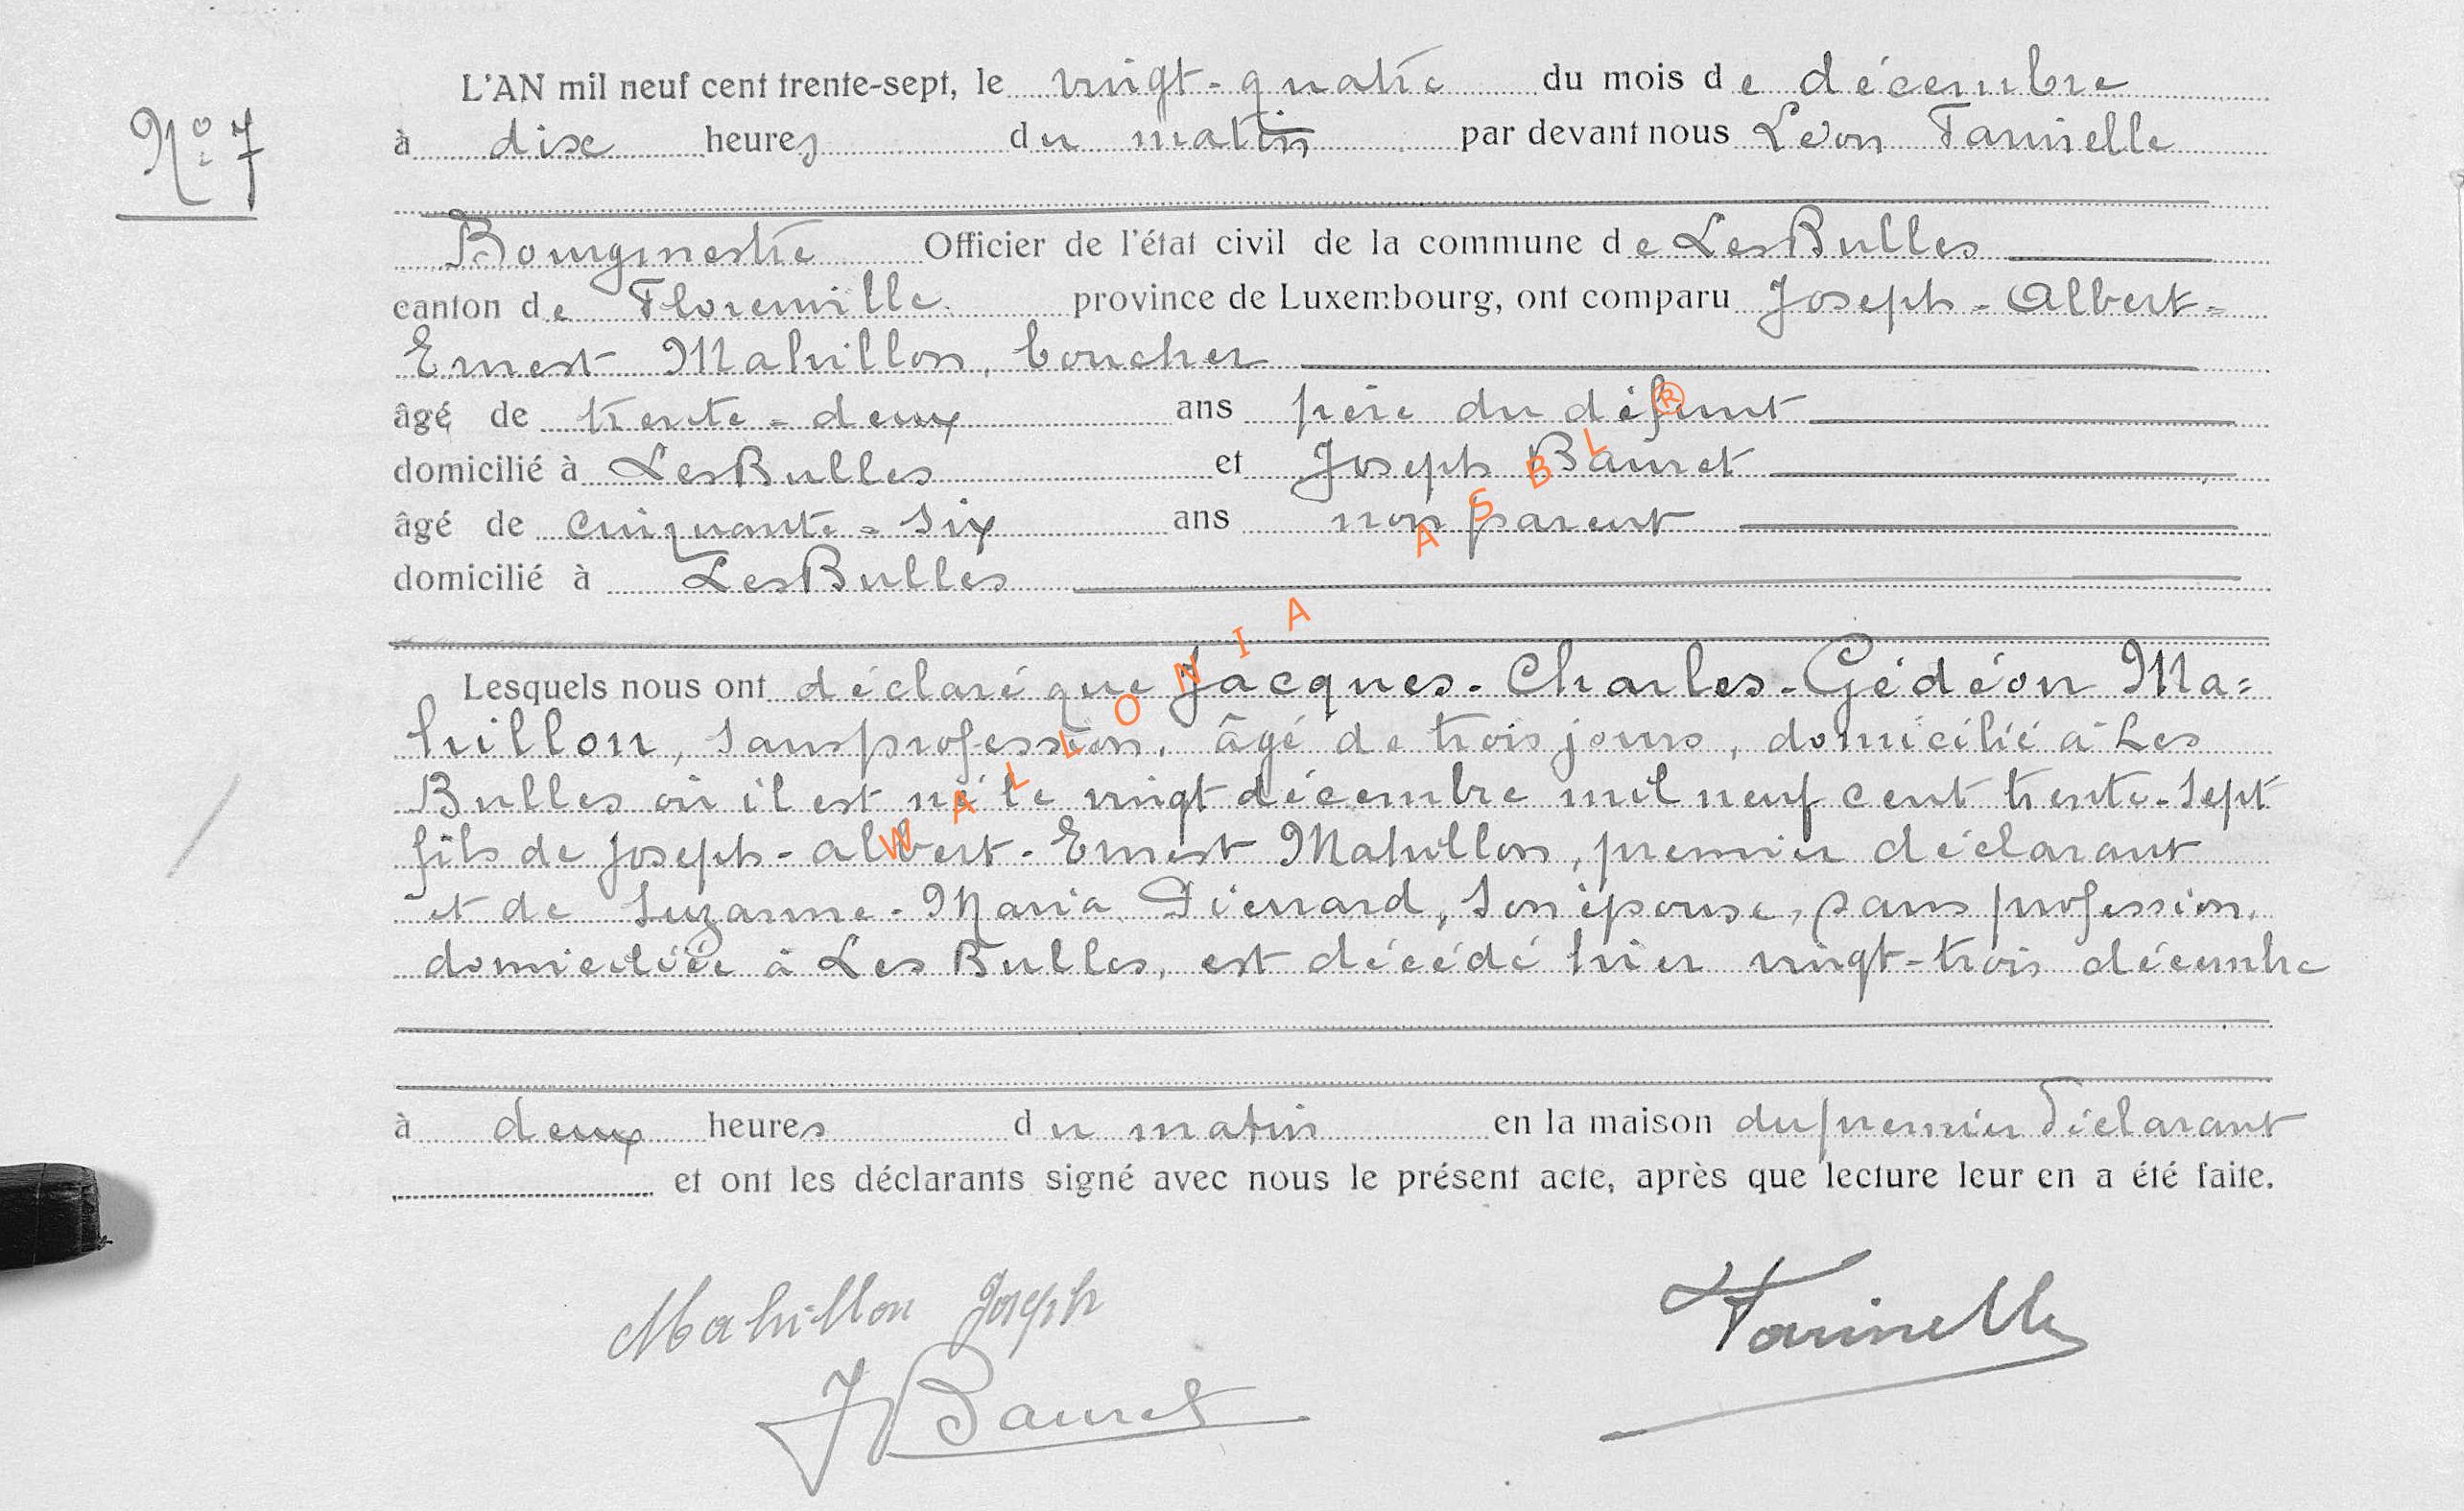 L'AN mil neuf cent trente-sept, le vingt-quatre du mois de décembre
N° 7
à dix heures du matin par devant nous Léon Farinelle
Bourgmestre Officier de l'état civil de la commune de Les Bulles
canton de Florenville province de Luxembourg, ont comparu Joseph-Albert-
Ernest Mahillon, boucher
âgé de trente-deux ans père du défunt
domicilié à Les Bulles et Joseph Bauret
âgé de cinquante-six ans non parent
domicilié à Les Bulles
Lesquels nous ont déclaré que Jacques-Charles-Gédéon Ma=
hillon, sans profession, âgé de trois jours, domicilié à Les
Bulles où il est né le vingt décembre mil neuf cent trente-sept
fils de Joseph-Albert-Ernest Mahillon, premier déclarant
et de Suzanne-Maria Piérrard, son épouse, sans profession,
domiciliée à Les Bulles, est décédé hier vingt-trois décembre
à deux heures du matin en la maison du premier déclarant
et ont les déclarants signé avec nous le présent acte, après que lecture leur en a été faite.
Mahillon Joseph
Farinelle
J Bauret
WALLONIA ASBL ®